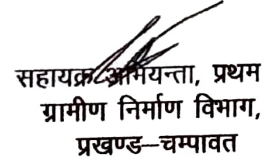 सहायक अभियन्ता, प्रथम
ग्रामीण निर्माण विभाग,
प्रखण्ड–चम्पावत